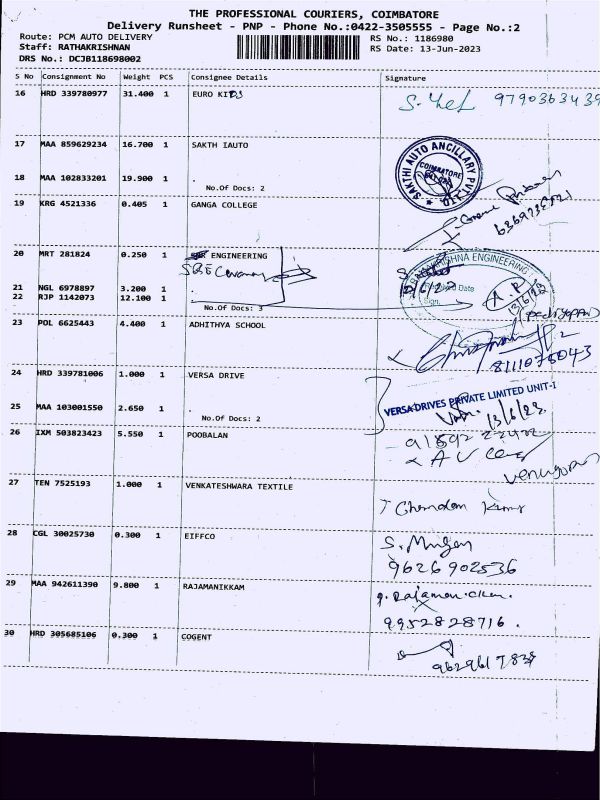 THE PROFESSIONAL COURIERS, COIMBATORE
Delivery Runsheet - PNP - Phone No.:0422-3505555 - Page No.:2
Route: PCM AUTO DELIVERY RS No.: 1186980
Staff: RATHAKRISHNAN RS Date: 13-Jun-2023
DRS No.: DCJB118698002
S No Consignment No Weight PCS Consignee Details Signature
16 HRD 339780977 31.400 1 EURO KIDS
17 MAA 859629234 16.700 1 SAKTH IAUTO
SAKTHI AUTO ANCILLARY PVT LTD
COIMBATORE
18 MAA 102833201 19.900 1 .
No.Of Docs: 2
19 KRG 4521336 0.405 1 GANGA COLLEGE
20 MRT 281824 0.250 1 ENGINEERING
21 NGL 6978897 3.200 1 .
22 RJP 1142073 12.100 1 .
No.Of Docs: 3
RAMAKRISHNA ENGINEERING
Date
Sign.
13/6/23
23 POL 6625443 4.400 1 ADHITHYA SCHOOL
8111076043
24 HRD 339781006 1.000 1 VERSA DRIVE
25 MAA 103001550 2.650 1 .
No.Of Docs: 2
VERSA DRIVES PRIVATE LIMITED UNIT-I
13/6/23
26 IXM 503823423 5.550 1 POOBALAN
Venugopal
27 TEN 7525193 1.000 1 VENKATESHWARA TEXTILE
28 CGL 30025730 0.300 1 EIFFCO
S. Mugen
9626902536
29 MAA 942611390 9.800 1 RAJAMANIKKAM
9952828716.
30 HRD 305685106 0.300 1 COGENT
9629617838